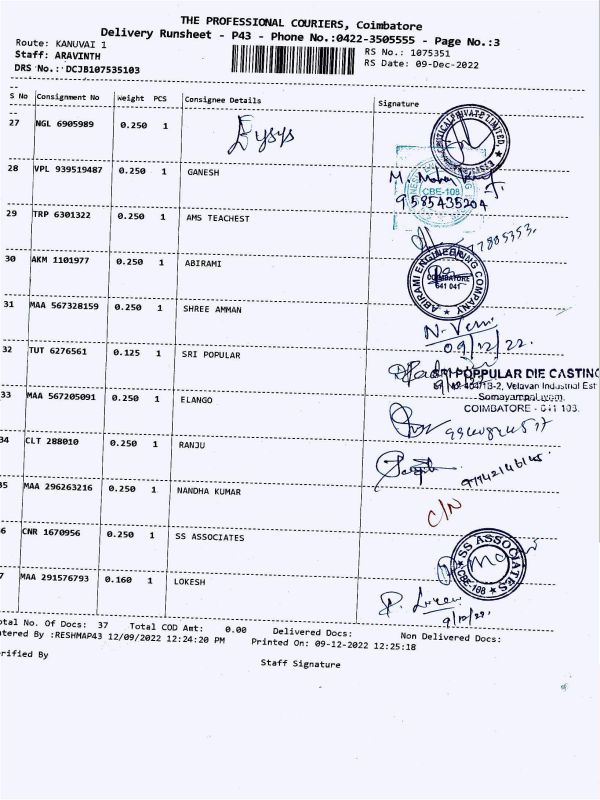 THE PROFESSIONAL COURIERS, Coimbatore
Delivery Runsheet - P43 - Phone No.:0422-3505555 - Page No.:3
Route: KANUVAI 1
RS No.: 1075351
Staff: ARAVINTH
RS Date: 09-Dec-2022
DRS No.: DCJB107535103
S No Consignment No Weight PCS Consignee Details Signature
27 NGL 6905989 0.250 1
28 VPL 939519487 0.250 1 GANESH
CBE-108
9585435204
29 TRP 6301322 0.250 1 AMS TEACHEST
30 AKM 1101977 0.250 1 ABIRAMI
ABIRAMI ENGINEERING COMPANY
COIMBATORE
641 041
31 MAA 567328159 0.250 1 SHREE AMMAN
09/12/22.
32 TUT 6276561 0.125 1 SRI POPULAR
SRI POPPULAR DIE CASTING
Velavan Industrial Est
Somayampalayam,
COIMBATORE - 641 108.
33 MAA 567205091 0.250 1 ELANGO
34 CLT 288010 0.250 1 RANJU
35 MAA 296263216 0.250 1 NANDHA KUMAR
C/N
6 CNR 1670956 0.250 1 SS ASSOCIATES
SS ASSOCIATES
CBE-108
7 MAA 291576793 0.160 1 LOKESH
9/12/22.
otal No. Of Docs: 37 Total COD Amt: 0.00 Delivered Docs: Non Delivered Docs:
ntered By :RESHMAP43 12/09/2022 12:24:20 PM Printed On: 09-12-2022 12:25:18
erified By
Staff Signature